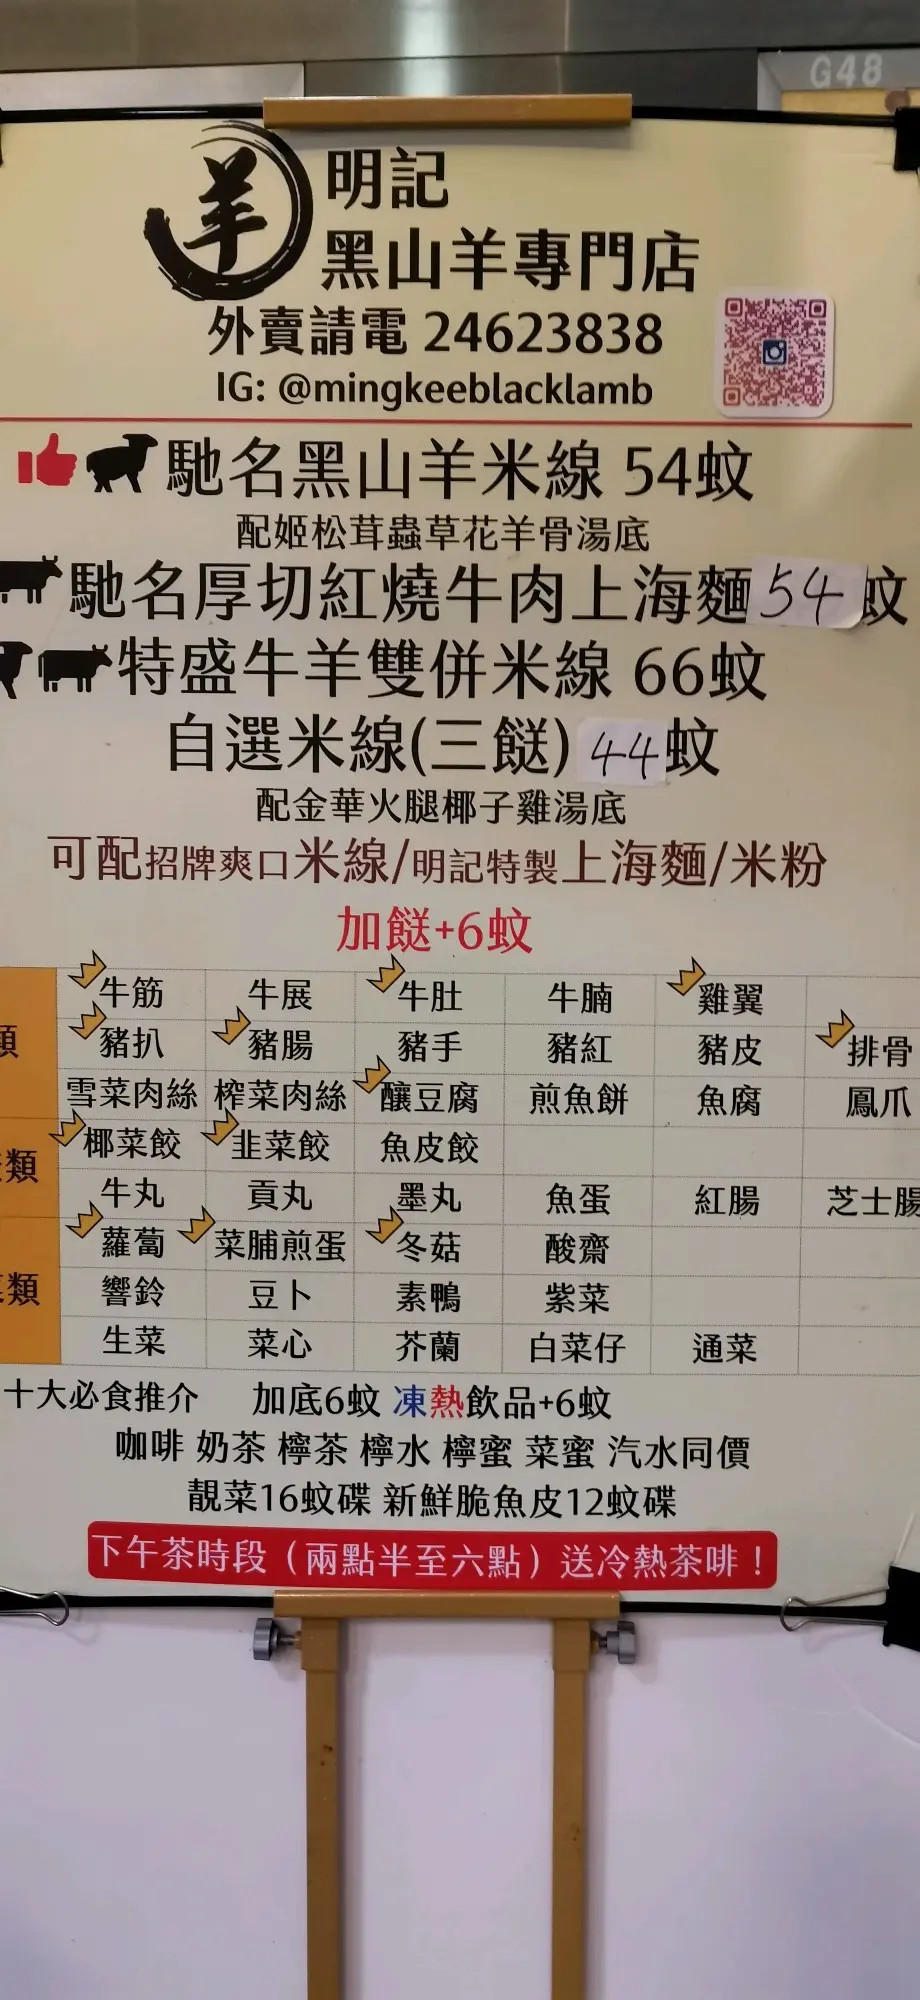 G48
羊
明記
黑山羊專門店
外賣請電 24623838
IG: @mingkeeblacklamb
馳名黑山羊米線 54蚊
配姬松茸蟲草花羊骨湯底
馳名厚切紅燒牛肉上海麵54蚊
特盛牛羊雙併米線 66蚊
自選米線(三餸) 44蚊
配金華火腿椰子雞湯底
可配招牌爽口米線/明記特製上海麵/米粉
加餸+6蚊
牛筋 牛展 牛肚 牛腩 雞翼
類 豬扒 豬腸 豬手 豬紅 豬皮 排骨
雪菜肉絲 榨菜肉絲 釀豆腐 煎魚餅 魚腐 鳳爪
類 椰菜餃 韭菜餃 魚皮餃
牛丸 貢丸 墨丸 魚蛋 紅腸 芝士腸
蘿蔔 菜脯煎蛋 冬菇 酸齋
類 響鈴 豆卜 素鴨 紫菜
生菜 菜心 芥蘭 白菜仔 通菜
十大必食推介 加底6蚊 凍熱飲品+6蚊
咖啡 奶茶 檸茶 檸水 檸蜜 菜蜜 汽水同價
靚菜16蚊碟 新鮮脆魚皮12蚊碟
下午茶時段（兩點半至六點）送冷熱茶啡！